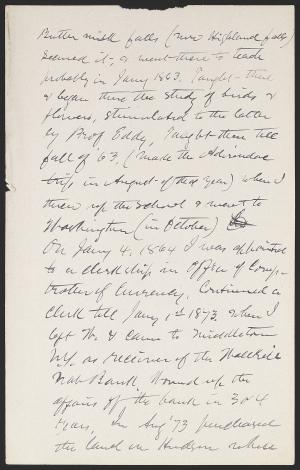 Butter milk falls (now Highland falls)
secured it, & went there to teach
probably in Jany 1863. Taught there
& began there the study of birds &
flowers, stimulated to the latter
by Prof Eddy, Taught there till
fall of '63. (made the Adirondac
trip in August of that year) when I
threw up the school & went to
Washington (in October)
On Jany 4, 1864 I was appointed
to a clerkship in Office of Comp-
troller of Currency. Continued a
clerk till Jany 1st 1873 when I
left W. & came to Middletown
N.Y. as receiver of the Wallkill
Nat Bank. Wound up the
affairs of the bank in 3 or 4
years, In Aug '73 purchased
the land on Hudson where